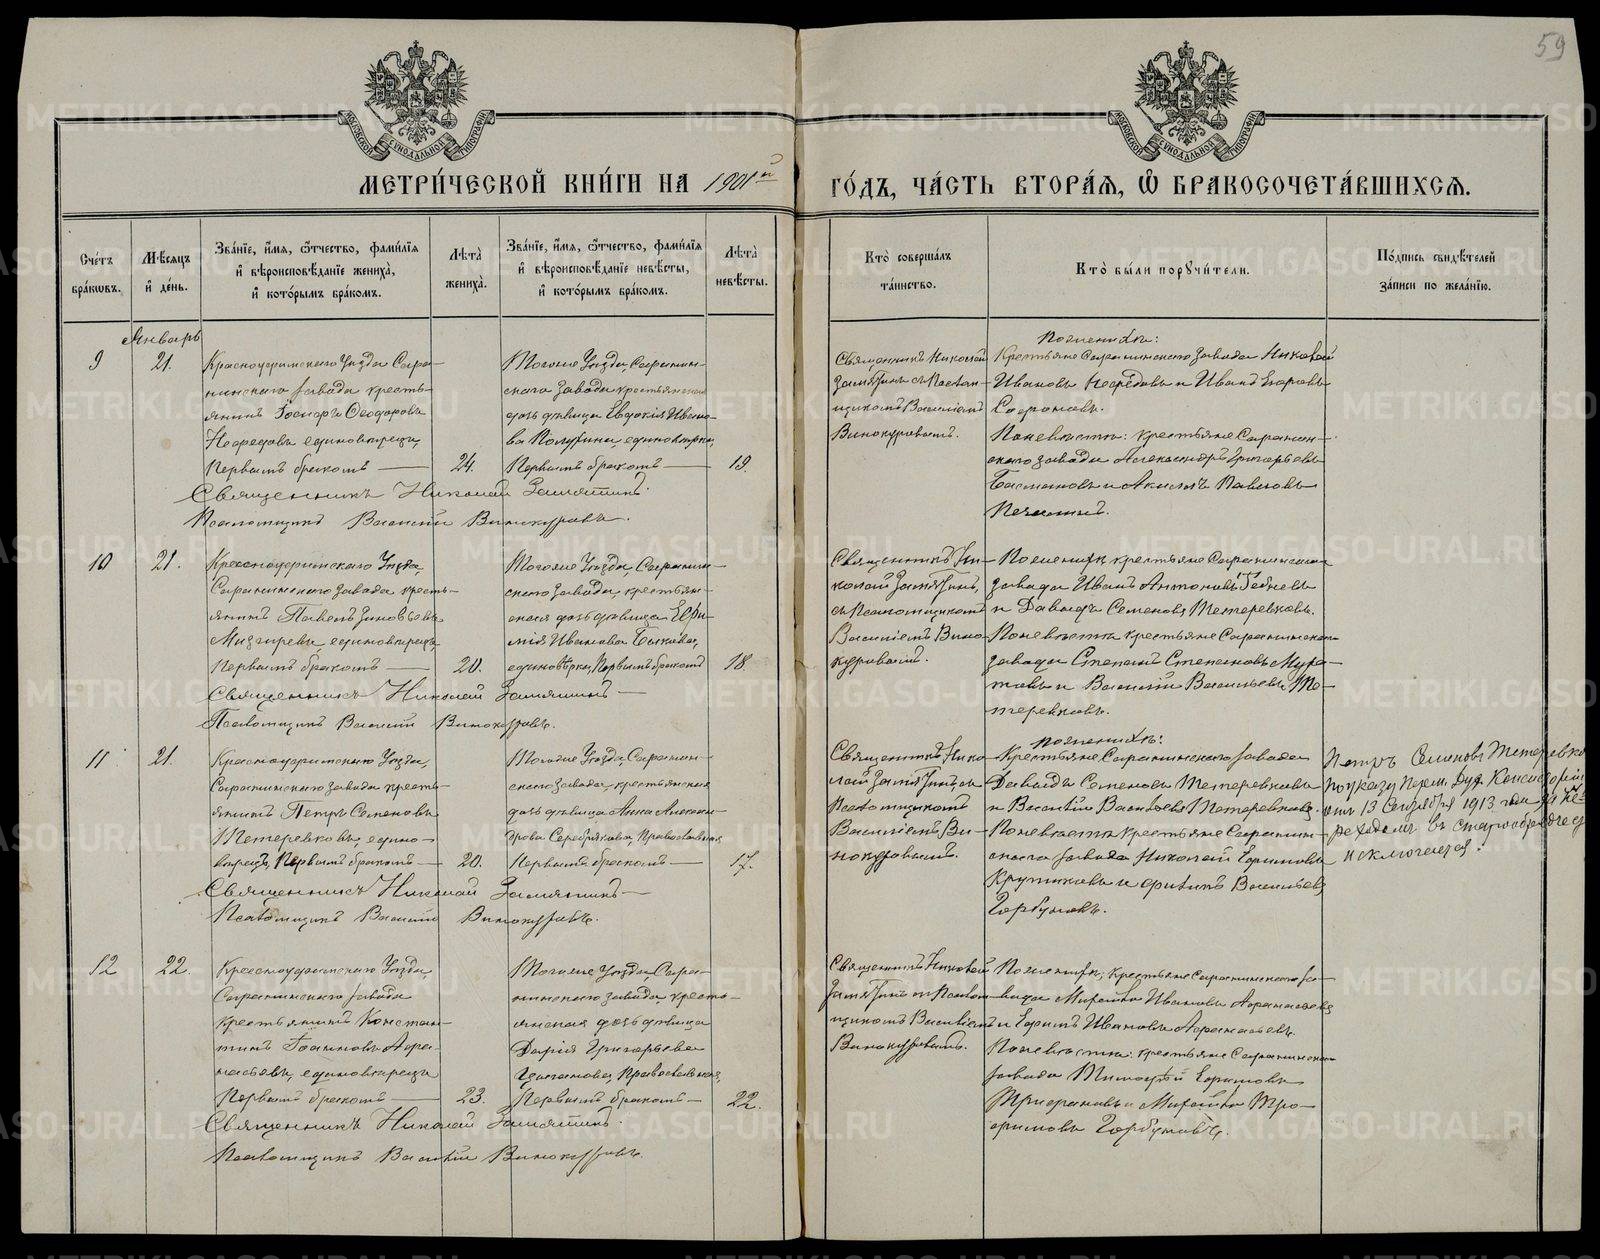 59
МОСКОВСКОЙ СУНОДАЛЬНОЙ ТИПОГРАФІИ
МОСКОВСКОЙ СУНОДАЛЬНОЙ ТИПОГРАФІИ
МЕТРИ́ЧЕСКОЙ КНИ́ГИ НА 1901й ГО́ДЪ, ЧА́СТЬ ВТОРА́Я, Ѡ БРАКОСОЧЕТА́ВШИХСЯ.
Сче́тъ бра́кѡвъ.
Мѣ́сяцъ и҆ де́нь.
Зва́нїе, и҆́мя, ѻ҆́тчество, фами́лїя
и҆ вѣроисповѣ́данїе жениха̀,
и҆ кото́рымъ бра́комъ.
Лѣта̀ жениха̀.
Зва́нїе, и҆́мя, ѻ҆́тчество, фами́лїя
и҆ вѣроисповѣ́данїе невѣ́сты,
и҆ кото́рымъ бра́комъ.
Лѣта̀ невѣ́сты.
Кто̀ соверша́лъ та́инство.
Кто̀ бы́ли порꙋчи́тели.
По́дпись свидѣ́телей за́писи по жела́нїю.
Январь
9
21.
Красноуфимскаго Уѣзда Сара-
нинскаго завода кресть-
янинъ Іосифъ Ѳеодоровъ
единовѣрецъ,
Первымъ бракомъ
24.
Тогоже Уѣзда, Саранин-
скаго завода крестьянская
дочь дѣвица Евдокія Ивано-
ва единовѣрка,
Первымъ бракомъ
19.
Священникъ Николай
Замятинъ съ Псалом-
щикомъ Василіемъ
Винокуровымъ.
По женихѣ:
Крестьяне Саранинскаго завода Николай
Ивановъ и Иванъ Егоровъ
Сафоновъ.
По невѣстѣ: крестьяне Саранин-
скаго завода Александръ Григорьевъ
и Акимъ Павловъ
Священникъ Николай Замятинъ.
Псаломщикъ Василій Винокуровъ.
10
21.
Красноуфимскаго Уѣзда,
Саранинскаго завода кресть-
янинъ Павелъ Зиновьевъ
Мизгиревъ, единовѣрецъ,
Первымъ бракомъ
20.
Тогоже Уѣзда, Саранин-
скаго завода, крестьян-
ская дочь дѣвица Ефи-
мія Иванова Быкова,
единовѣрка, Первымъ бракомъ
18.
Священникъ Ни-
колай Замятинъ,
съ Псаломщикомъ
Василіемъ Вино-
куровымъ.
По женихѣ крестьяне Саранинскаго
завода Иванъ Антоновъ
и Давыдъ Семеновъ Тетеревковъ.
По невѣстѣ крестьяне Саранинскаго
завода Степанъ Степановъ Мура-
товъ и Василій Васильевъ Те-
теревковъ.
Священникъ Николай Замятинъ
Псаломщикъ Василій Винокуровъ.
11
21.
Красноуфимскаго Уѣзда,
Саранинскаго завода кресть-
янинъ Петръ Семеновъ
Тетеревковъ, едино-
вѣрецъ, Первымъ бракомъ
20.
Тогоже Уѣзда, Саранин-
скаго завода, крестьянская
дочь дѣвица Анна Алексан-
дрова Серебрякова, Православная
Первымъ бракомъ
17.
Священникъ Нико-
лай Замятинъ, съ
Псаломщикомъ
Василіемъ Ви-
нокуровымъ.
По женихѣ:
Крестьяне Саранинскаго завода
Давыдъ Семеновъ Тетеревковъ
и Василій Васильевъ Тетеревковъ.
По невѣстѣ крестьяне Саранин-
скаго завода Николай Ефимовъ
Крутиковъ и Филипъ Васильевъ
Горбуновъ.
Петръ Семеновъ Тетеревко
по указу Перм. Дух. Консисторіи
отъ 13 Сентября 1913 года за № пе-
реходомъ въ старообрядчес
исключается.
Священникъ Николай Замятинъ
Псаломщикъ Василій Винокуровъ.
12
22.
Красноуфимскаго Уѣзда,
Саранинскаго завода
крестьянинъ Констан-
тинъ Іоанновъ Афа-
насьевъ, единовѣрецъ
Первымъ бракомъ
23.
Тогоже Уѣзда, Сара-
нинскаго завода кресть-
янская дочь дѣвица
Дарія Григорьева
Цыганова, Православная,
Первымъ бракомъ
22.
Священникъ Николай
Замятинъ съ Псалом-
щикомъ Василіемъ
Винокуровымъ.
По женихѣ: крестьяне Саранинскаго за-
вода Михаилъ Ивановъ Афанасьевъ
и Ефимъ Ивановъ Афанасьевъ.
По невѣстѣ: крестьяне Саранинскаго
завода Тимофей Ефимовъ
Трифановъ и Михаилъ Тро-
фимовъ Горбуновъ.
Священникъ Николай Замятинъ.
Псаломщикъ Василій Винокуровъ.
METRIKI.GASO-URAL.RU